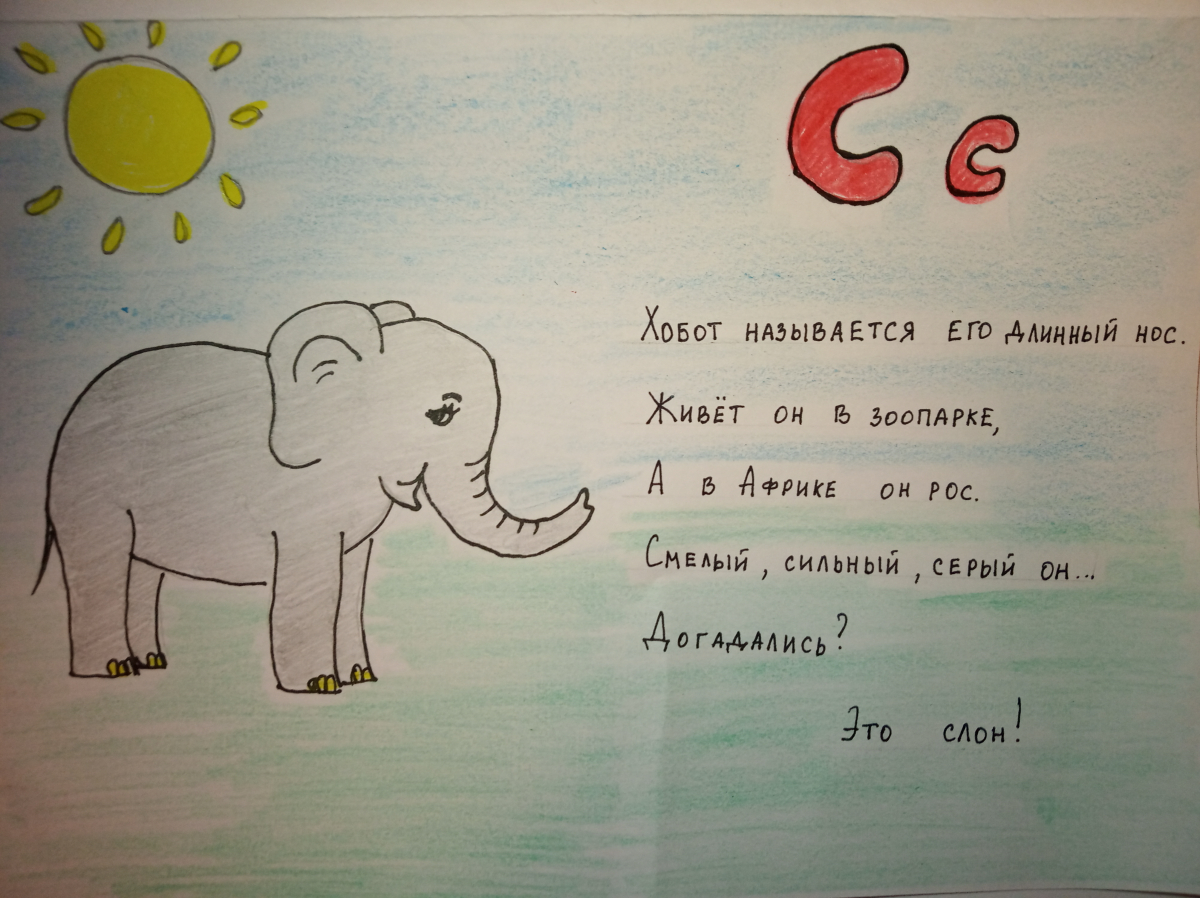 С с
Хобот называется его длинный нос.
Живёт он в зоопарке,
А в Африке он рос.
Смелый, сильный, серый он...
Догадались?
Это слон!